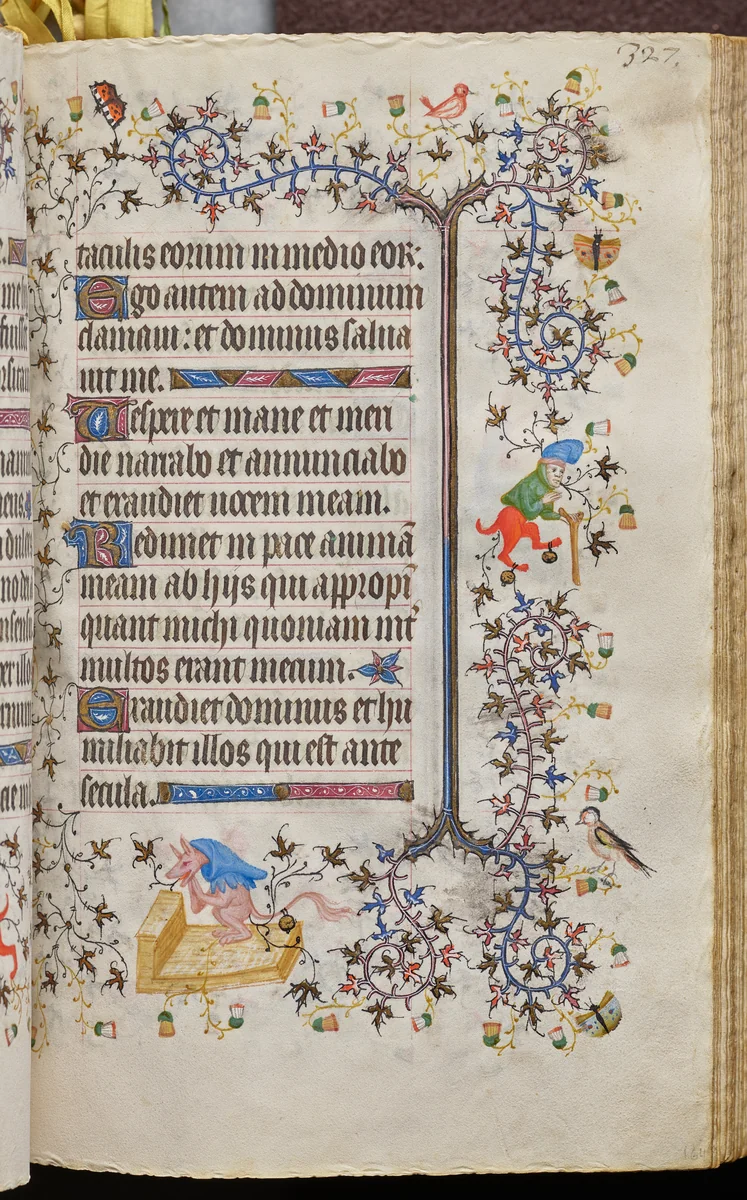 327.
taculis eorum in medio eor:
Ego autem ad dominum
clamaui: et dominus salua
uit me.
Vespere et mane et meri
die narrabo et annunciabo
et exaudiet uocem meam.
Redimet in pace animā
meam ab hijs qui appropī
quant michi quoniam int̾
multos erant mecum.
Exaudiet dominus et hu
miliabit illos qui est ante
secula.